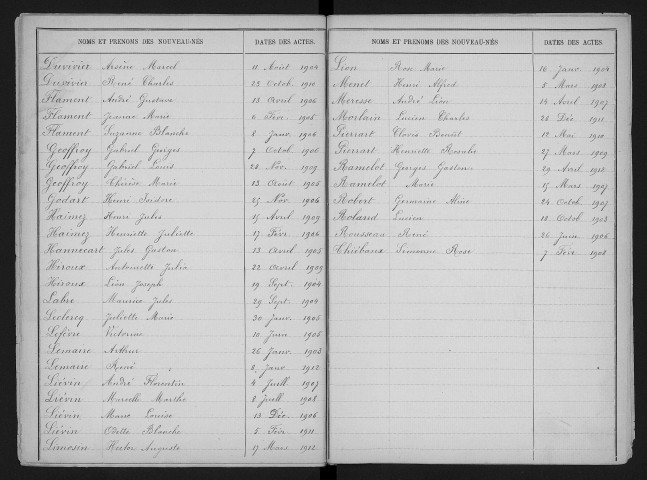 NOMS ET PRENOMS DES NOUVEAU-NÉS DATES DES ACTES.
Duvivier Arsène Marcel 11 Août 1904
Duvivier René Charles 23 Octob. 1910
Flament André Gustave 13 Avril 1906
Flament Jeanne Marie 6 Févr. 1905
Flament Suzanne Blanche 8 Janv. 1906
Geoffroy Gabriel 7 Octob. 1906
Geoffroy Gabriel Louis 28 Nov. 1909
Geoffroy Thérèse Marie 13 Août 1905
Godart Henri Isidore 25 Nov. 1906
Haimez Henri Jules 15 Avril 1909
Haimez Henriette Juliette 17 Févr. 1906
Hannecart Jules Gaston 13 Avril 1905
Hiroux Antoinette Julia 22 Avril 1909
Hiroux Léon Joseph 19 Sept. 1904
Labre Maurice Jules 29 Sept. 1904
Leclercq Juliette Marie 30 Janv. 1905
Lefèvre 10 Juin 1905
Lemaire Arthur 26 Janv. 1903
Lemaire René 8 Janv. 1912
Liévin André Florentin 4 Juill. 1907
Liévin Marcelle Marthe 8 Juill. 1908
Liévin Marie Louise 13 Déc. 1906
Liévin Odette Blanche 5 Févr. 1911
Limosin Hector Auguste 17 Mars
NOMS ET PRENOMS DES NOUVEAU-NÉS DATES DES ACTES.
Lion Rose Marie 16 Janv. 1904
Menet Henri Alfred 5 Mars 1903
Meresse André Léon 14 Avril 1907
Morlain Lucien Charles 28 Déc. 1911
Pierrart Clovis Benoît 12 Mai 1910
Pierrart Henriette Rosalie 27 Mars 1909
Ramelot Georges Gaston 29 Avril 1912
Ramelot Marie 15 Mars 1907
Robert Germaine Aline 24 Octob. 1907
Roland Lucien 18 Octob. 1903
Rousseau René 26 Juin 1906
Thiébaux Simonne Rose 7 Févr. 1908